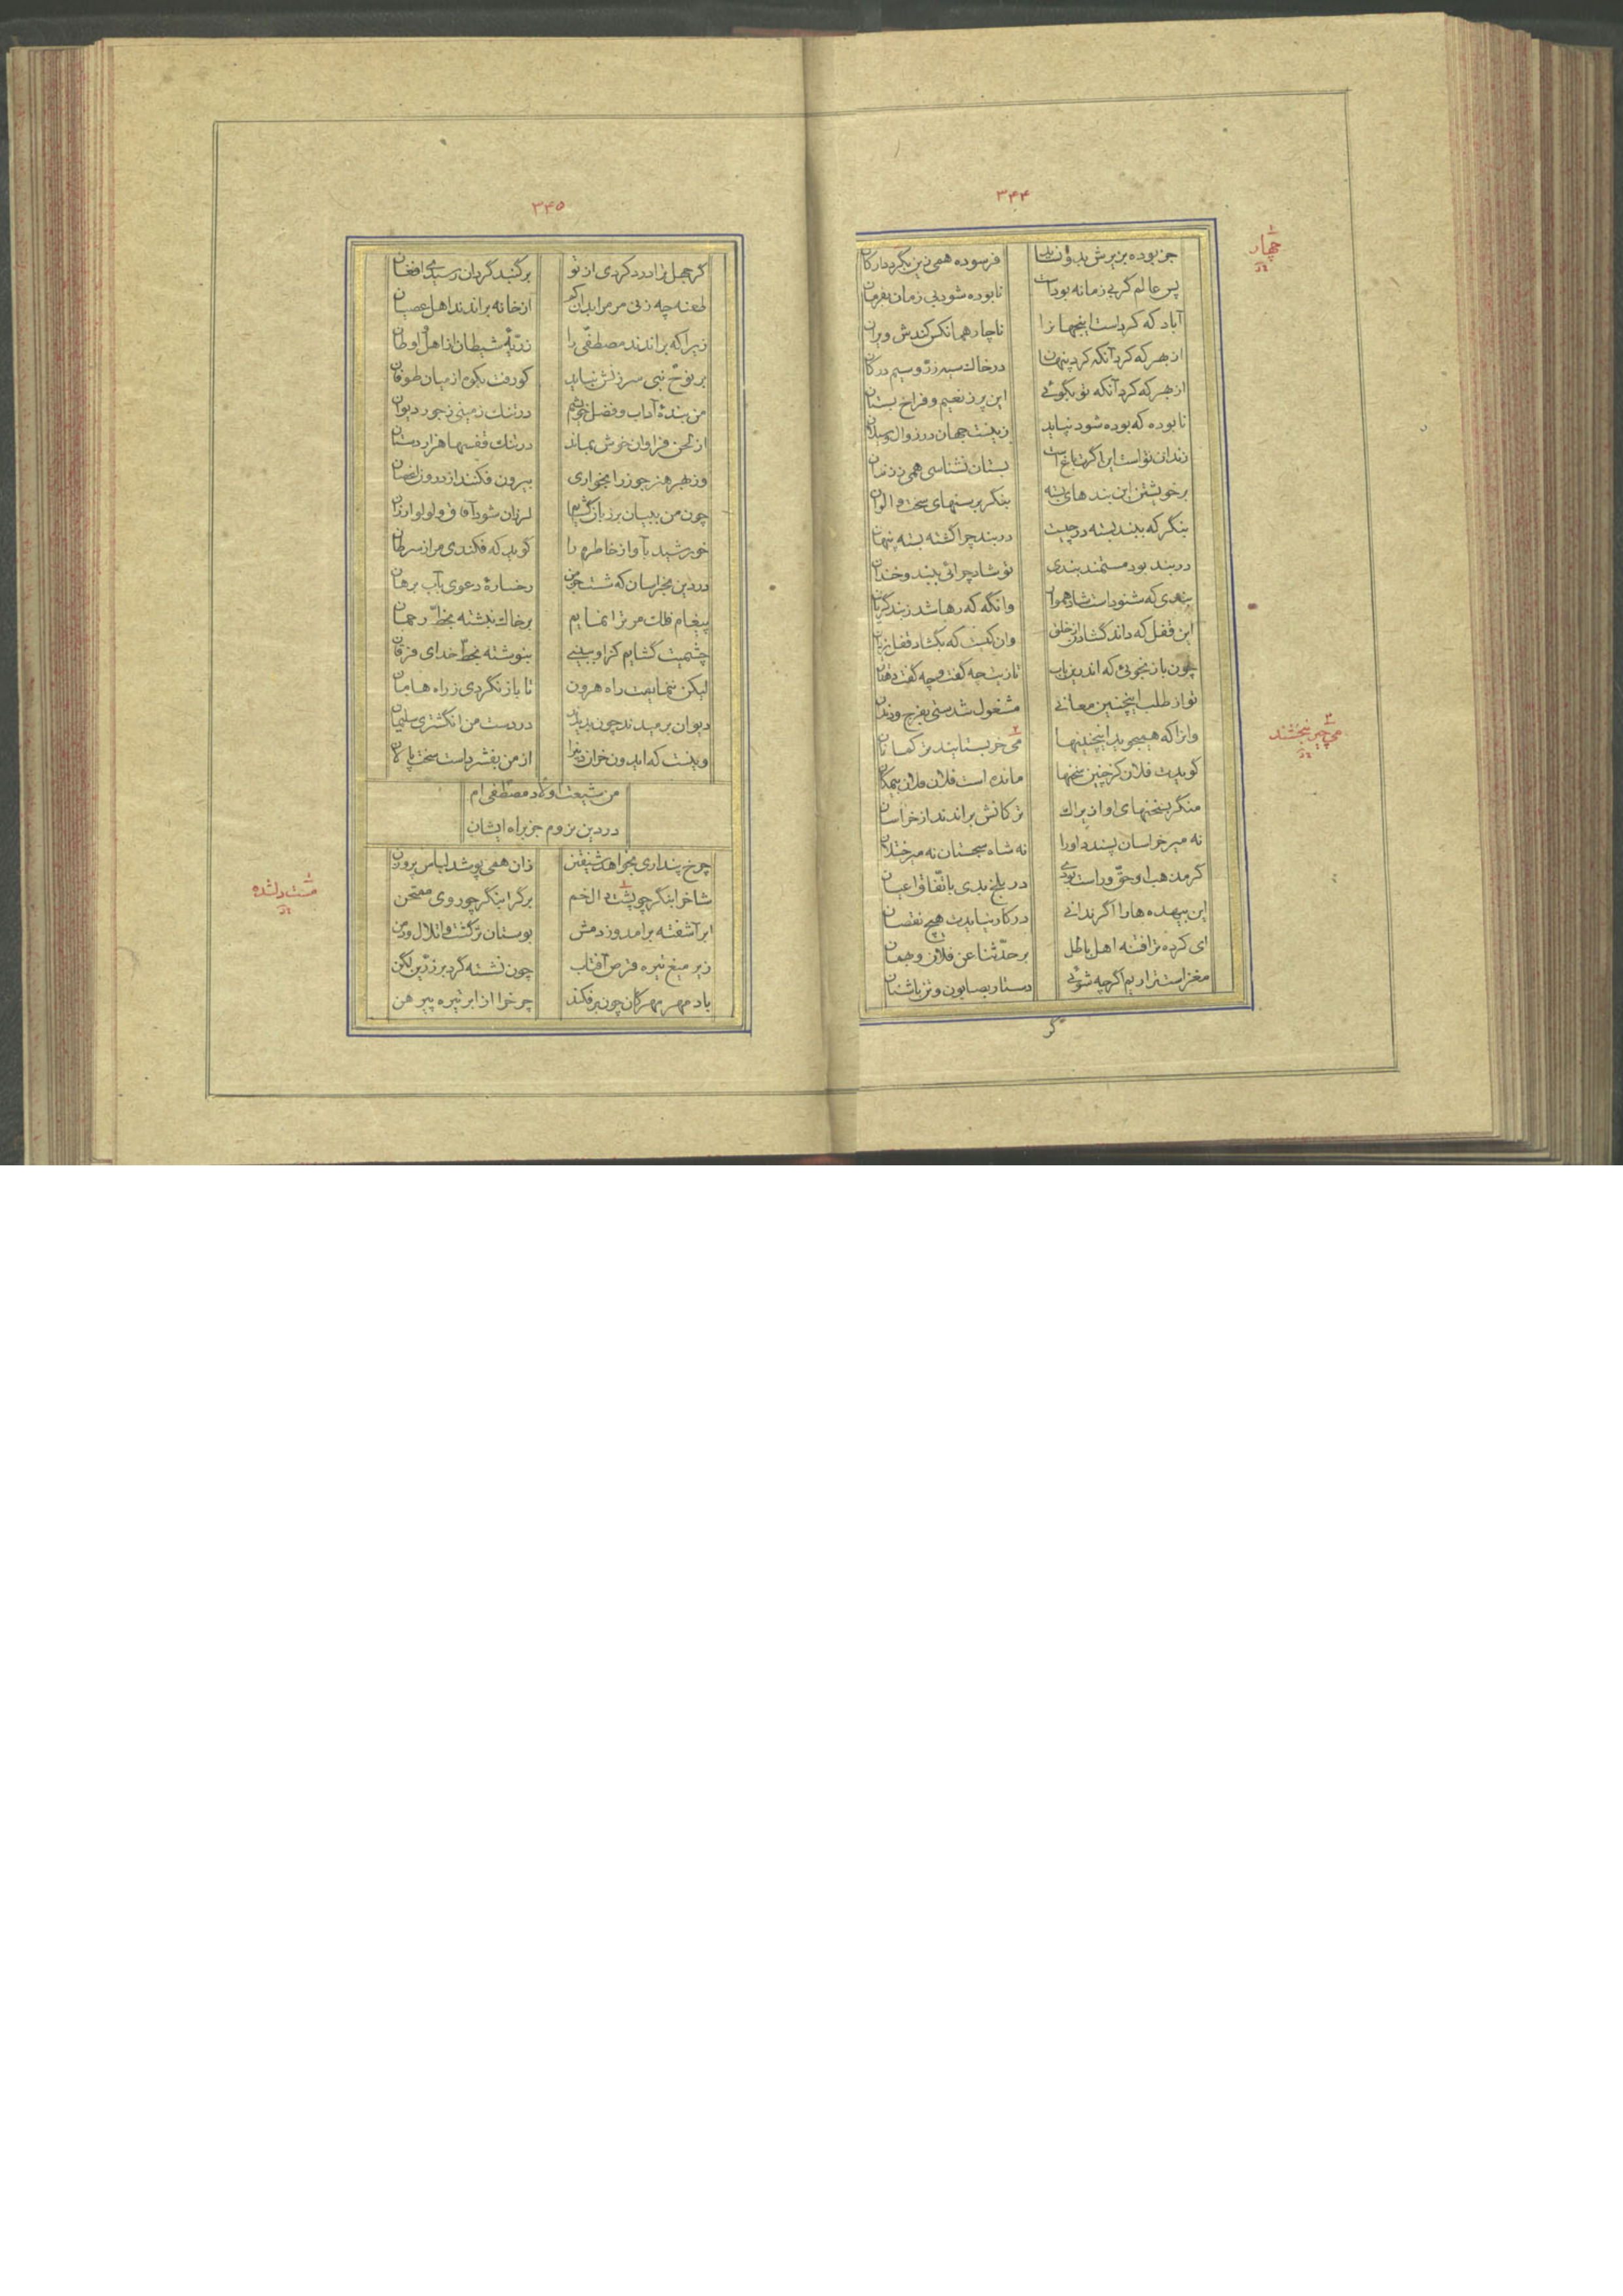 ۳۴۴
چهار
پس عالم گر بی زمانه بوداست نابوده شود بی زمان بفرمان
آباد که کرداست اینجهانرا ناچار همانکس کندش ویران
از بهر که کرد آنکه کرد پنهان درخاك سیه زرّ و سیم درکان
از بهر که کرد آنکه تو بگوئی این پر ز نعیم و فراخ بستان
نابوده که بوده شود نپاید زینست جهان در زوال و سیلان
زندان تو است این اگرت باغ است بستان نشناسی همی ز زندان
برخویشتن این بندهای بسته بنگر برسنهای سخت و الوان
بنگر که ببند بسته در چیست در بند چرا گشته بسته پنهان
در بند بود مستمند بندی تو شاد چرائی ببند و خندان
بندی که شنوداست شاد هموار وانگه که رها شد ز بند گریان
این قفل که داند گشاد از خلق وان کیست که بگشاد قفل یزدان
چون باز نجوئی که اندرین باب تازیت چه گفت و چه گفت دهقان
تو از طلب اینچنین معانی مشغول شدستی بفرج و دندان
وانرا که همیجوید اینچنینها می خر بستایند ترکمانان
می چیز نبخشند
گویدت فلان کز چنین سخنها مانده است فلان فلان بیمکان
منگر بسخنهای او ازیراك ترکانش براندند از خراسان
نه میر خراسان پسندد اورا نه شاه سجستان نه میر ختلان
گر مذهب او حقّ و راست بودی در بلخ بدی باتّفاق اعیان
این بیهده هارا اگر ندانی درکار نیایدت هیچ نقصان
ای کرده ترا فتنه اهل باطل بر حدّثنا عن فلان و بهمان
مغزاست ترا ریم اگرچه شوئی دستار بصابون و تن باشنان
گر
۳۴۵
گر جهل ترا درد کردی از تو بر گنبد گردان رسیدی افغان
طعنه چه زنی مر مرا بدان کم ازخانه براندند اهل عصیان
زیرا که براندند مصطفی را ذرّیّه شیطان از اهل اوطان
بر نوح نبی سرزنش نیاید کو رفت بکوه از میان طوفان
من بندهٔ آداب و فضل خویشم درتنك زمینی ز جور دیوان
از لحن فراوان خوش بماند درتنك قفسها هزاردستان
وز بهر هنر چوز را بخواری بیرون فکنند از درون اغصان
چون من ببیان بر زبان گشایم لرزان شود آفاق و لولو ارزان
خورشید بآواز خاطرم را گوید که فکندی مرا ز سرطان
دردین بخراسان که شست جز من رخسارهٔ دعوی بآب برهان
پیغام فلك مر ترا نمایم بر خاك نبشته بخطّ رحمان
چشمیت گشایم کز او ببینی بنوشته بخطّ خدای فرقان
لیکن ننمایمت راه هرون تا باز نگردی ز راه هامان
دیوان برمیدند چون بدیدند دردست من انگشتری سلیمان
وینست که ایدون خران دین را از من بفشرداست سخت پالان
من شیعت اولاد مصطفی ام
دردین نروم جز براه ایشان
چرخ پنداری بخواهد شیفتن زان همی پوشد لباس پر درن
شاخرا بنگر چو پشت دال خم برگرا بنگر چو روی ممتحن
دلشده
ابر آشفته برامد وز دمش بوستان پر گشت و اتلال و دمن
زیر میغ تیره قرص آفتاب چون نشسته گرد بر زرّین لگن
باد مهر مهرگان چون برفکند چرخرا از ابر تیره پیرهن